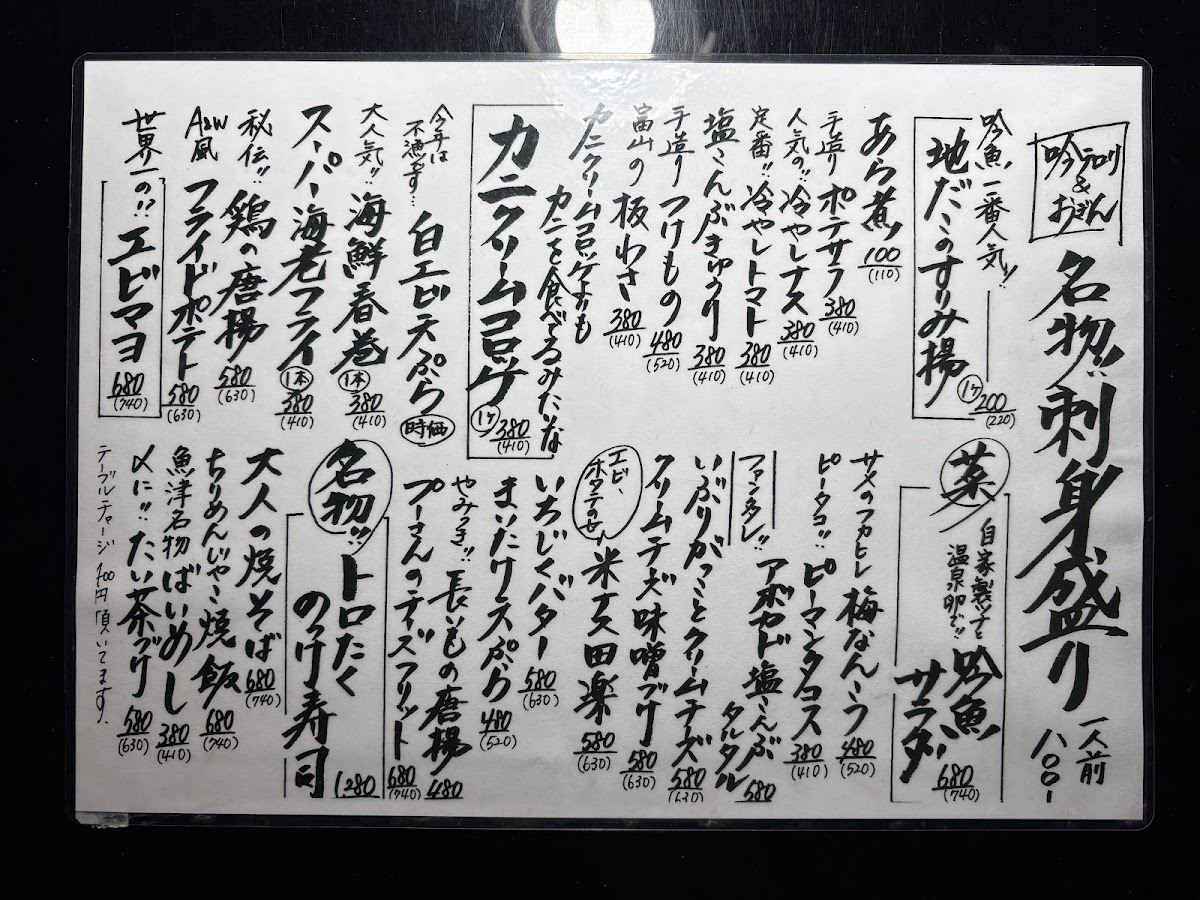 名物!!刺身盛り
一人前
八〇〇-
吟魚一番人気!!
地だこのすりみ揚
1ケ
200
(220)
あら煮
100
(110)
手造り
ポテサラ
380
(410)
人気の!!
冷やしナス
380
(410)
定番!!
冷やしトマト
380
(410)
塩こんぶきゅうり
380
(410)
手造り
つけもの
480
(520)
富山の
板わさ
380
(410)
カニクリームコロッケよりも
カニを食べてるみたいな
カニクリームコロッケ
1ケ
380
(410)
今年は
不漁です…
白エビ天ぷら
時価
大人気!!
海鮮春巻
1本
380
(410)
スーパー海老フライ
1本
380
(410)
秘伝!!
鶏の唐揚
580
(630)
A&W風
フライドポテト
580
(630)
世界一の!!
エビマヨ
680
(740)
菜
自家製ツナと
温泉卵で!!
吟魚
サラダ
680
(740)
サメのフカヒレ
梅なんこつ
480
(520)
ピータコ!!
ピーマンタコス
380
(410)
ファンタジレ!!
アボカド塩こんぶ
タルタル
580
いぶりがっことクリームチーズ
580
(630)
クリームチーズ味噌づけ
580
(630)
エビ、
ホタテのせ
米ナス田楽
580
(630)
いちじくバター
580
(630)
まいたけ天ぷら
480
(520)
やみつき!!
長いもの唐揚
480
プーさんのチーズフリット
680
(740)
名物!!
トロたく
のっけ寿司
1,280
大人の焼そば
680
(740)
ちりめんじゃこ焼飯
680
(740)
魚津名物
ばいめし
380
(410)
〆に!!
たい茶づけ
580
(630)
テーブルチャージ
400円頂いてます。